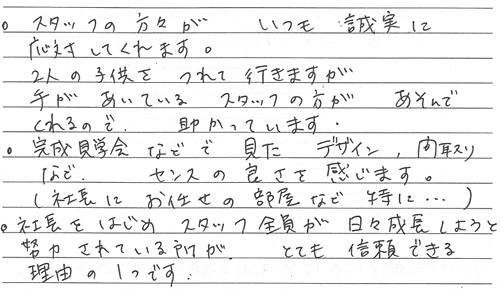 。スタッフの方々が いつも 誠実に
応対してくれます。
2人の子供を つれて行きますが
手が あいている スタッフの方が あそんで
くれるので、助かっています。
。完成見学会 などで 見た デザイン、肉取り
など、センスの良さを感じます。
(社長に お任せの 部屋など 特に…)
。社長をはじめ スタッフ全員が 日々成長しようと
努力されている所が、とても 信頼できる
理由の1つです。